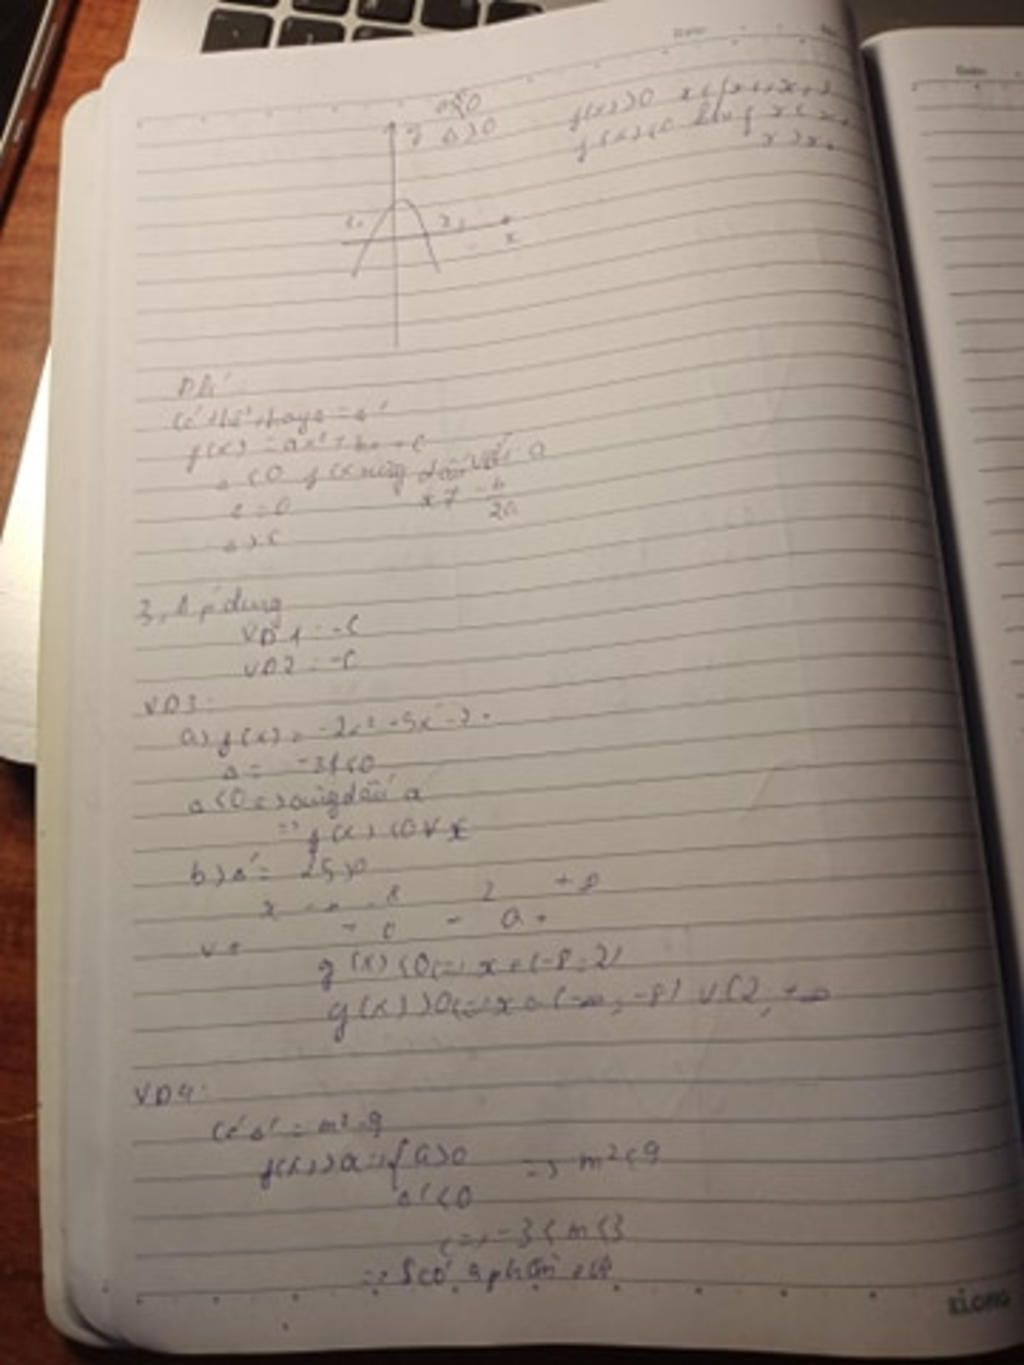 a<0
y Δ>0
f(x)>0 x∈(x₁, x₂)
f(x)<0 x<x₁
x>x₂
x₂
x
Có thể thay Δ = Δ'
f(x) = ax² + bx + c
Δ<0 f(x) cùng dấu với a
x ≠ -b/2a
3, Áp dụng
VD1: -C
VD2: -C
VD3:
a) f(x) = -2x² +5x -7.
Δ = -31<0
Δ<0 => cùng dấu a
=> f(x) <0 ∀ x
b) Δ' = 25>0
x -∞ -8 2 +∞
+ 0 - 0 +
g(x) <0 <=> x ∈ (-8; 2)
g(x) >0 <=> x ∈ (-∞; -8) ∪ (2, +∞
VD4:
Có Δ' = m² -9
f(x) > 0 <=> { a>0 => m²<9
Δ'<0
<=> -3<m<3
=> S có 5 phần tử
KLONG